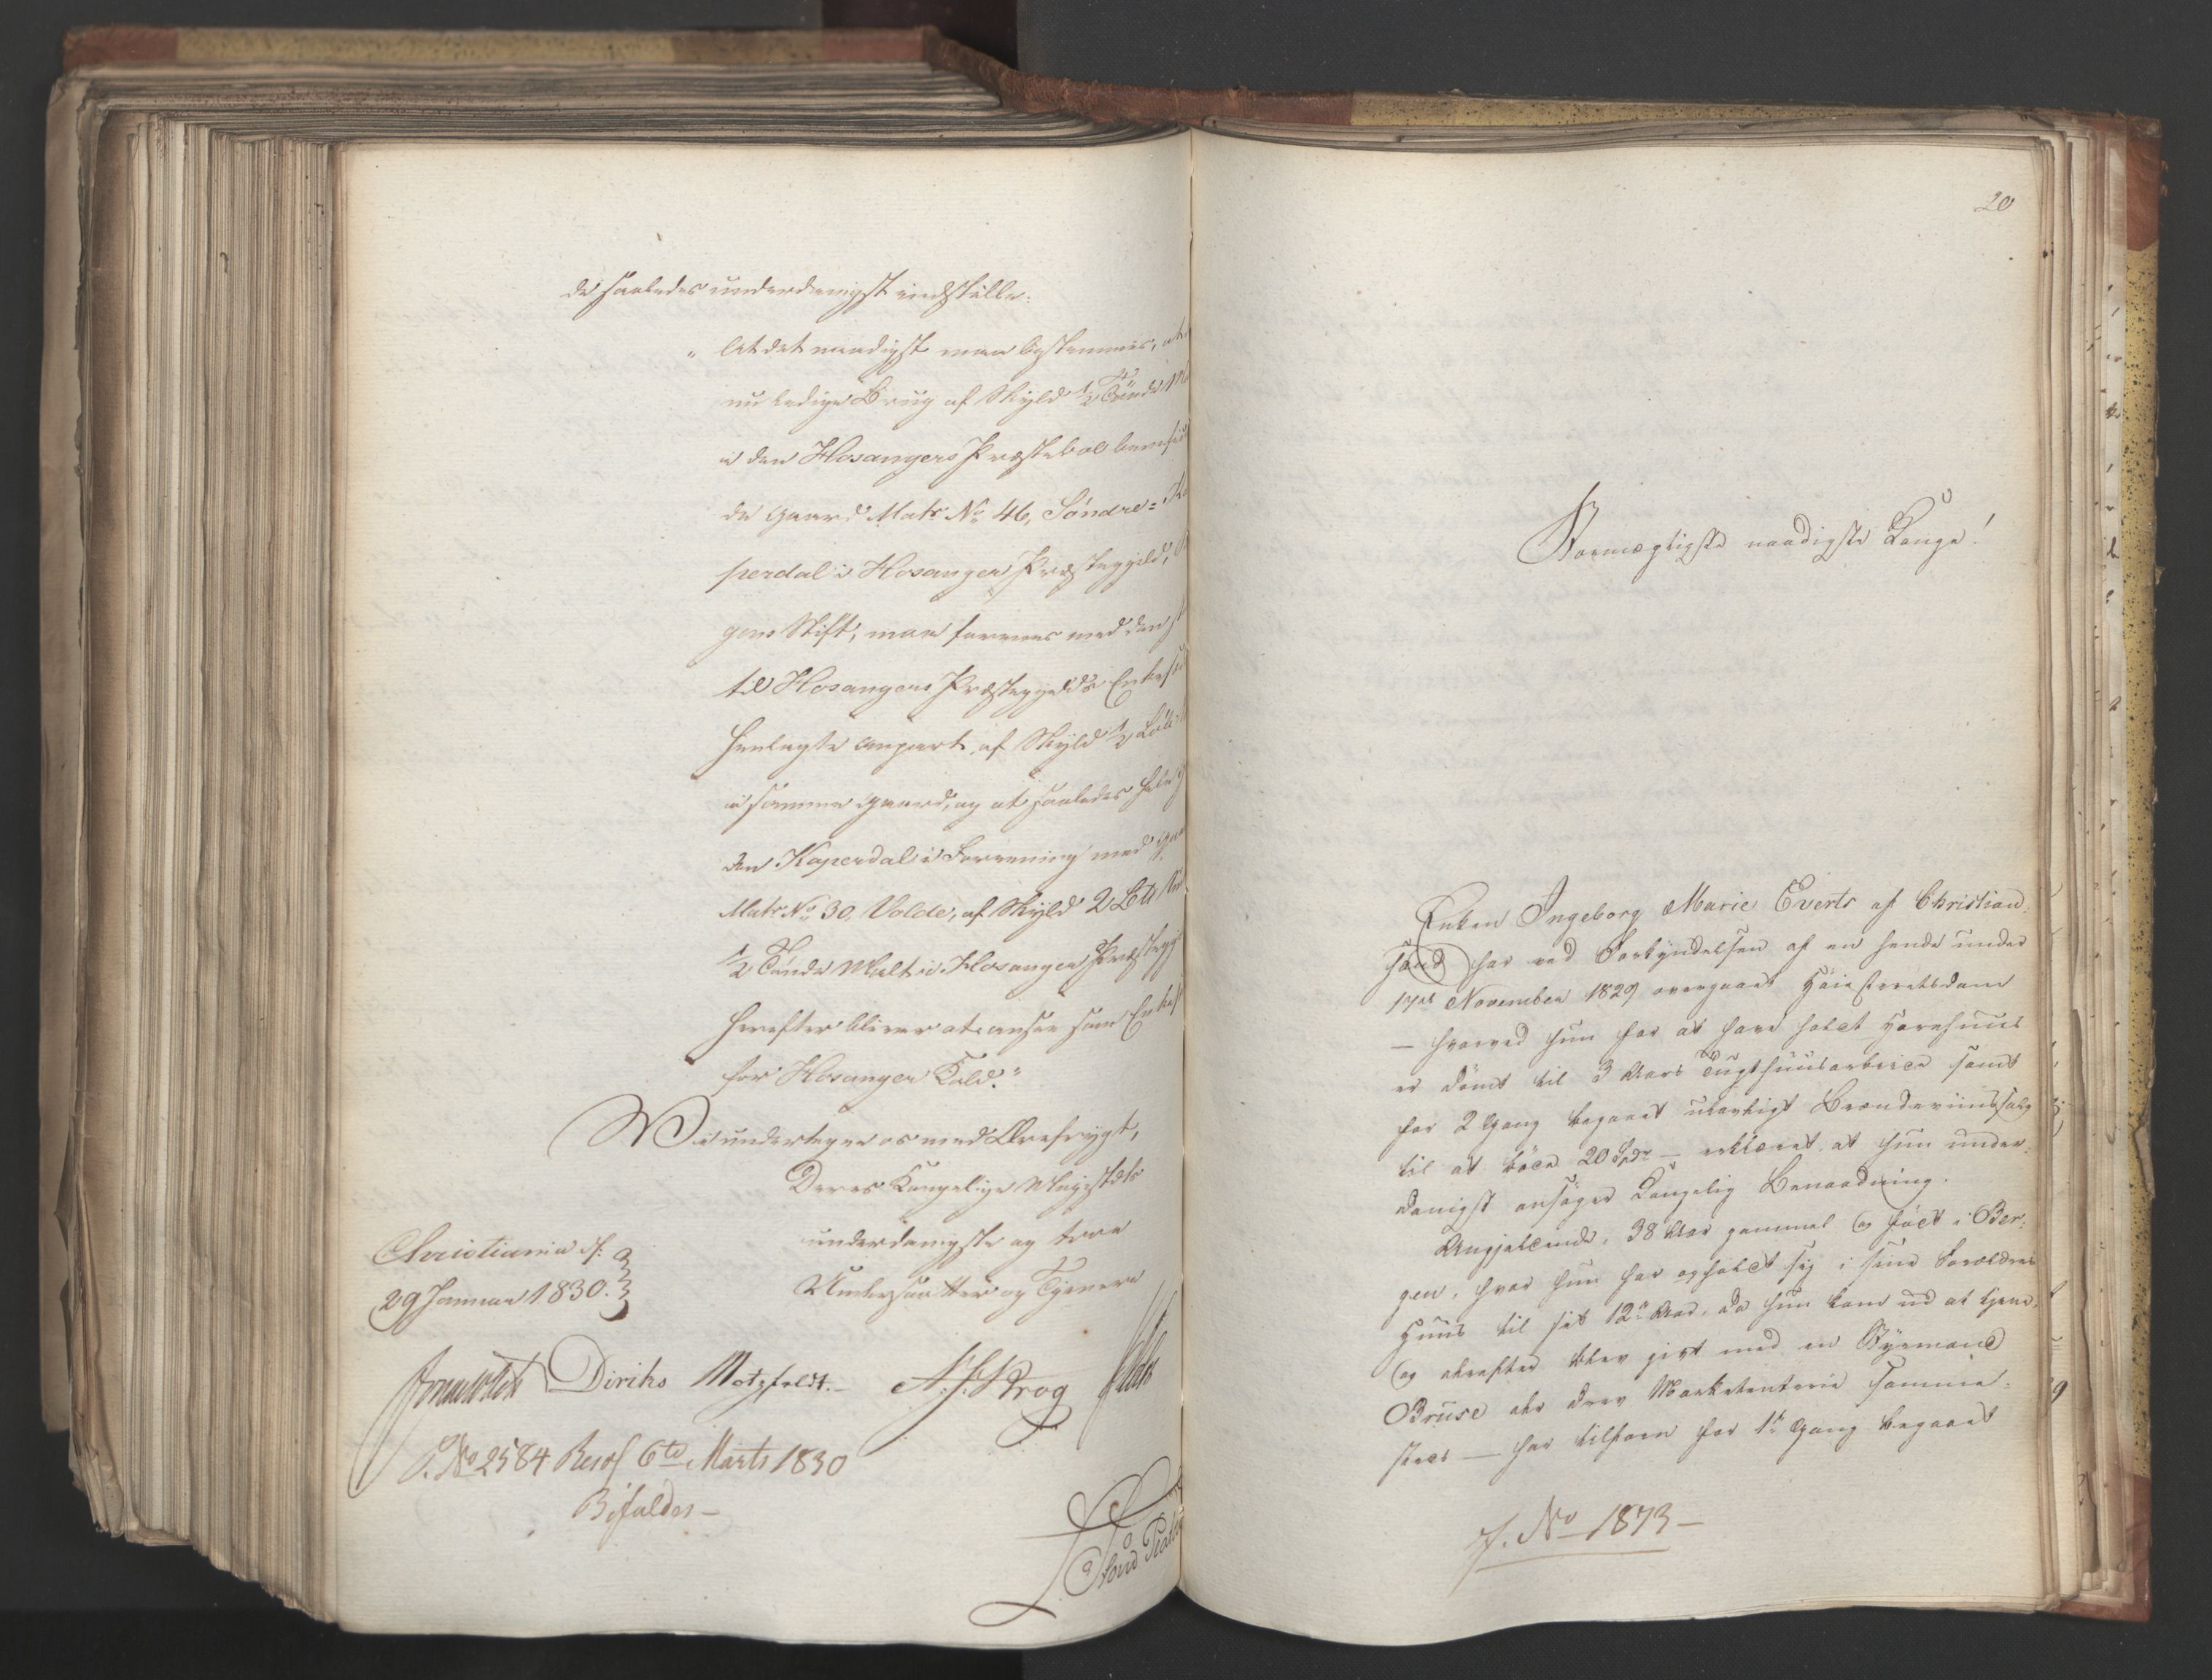 de saaledes underdanigst indstille:
" At det naadigst maa bestemmes, at
nu ledige Brug af Skyld 1/2 Tønde
i den Hosangers Præstebol beneficere
de Gaard Matr. No 46, Søndre=Ka
perdal i Hosanger Præstegjeld,
gens Stift, maa forenes med den
til Hosangers Præstegjelds Enkesæde
henlagte Anpart, af Skyld 1/2 Løb
i samme Gaard, og at saaledes hele
den Kaperdal i Forening med
Matr. No 30, Volde, af Skyld 2 Løb
1/2 Tønde Malt i Hosanger Præstegj
herefter bliver at ansee som Enkes
for Hosanger Kald."
Vi undertegne os med Ærefrygt,
Deres Kongelige Majestæts
underdanigste og troe
Undersaatter og Tjenere
Christiania d:
29 Januar 1830.
Diriks Motzfeldt. Krog
J. No 2584 Resol 6te Marts 1830
Bifaldes –
20
Stormægtigste naadigste Konge!
Enken Ingeborg Marie Everts af Christian-
sand har ved Forkyndelsen af en hende under
17de November 1829 overgaaet Høiesteretsdom
— hvorved hun for at have holdt Horehuus
er dømt til 3 Aars Tugthuusarbeide samt
for 2 Gang begaaet ulovligt Brændeviinssalg
til at bøde 20 Spdr — erklæret at hun under-
danigst ansøger Kongelig Benaadning.
Angjældende, 38 Aar gammel og født i Ber-
gen, hvor hun har opholdt sig i sine Forældres
Huus til sit 12te Aar, da hun kom ud at tjene,
og derefter blev gift med en Styrmand
Bruse der drev Marketenterie samme-
steds — har tilforn for 1te Gang begaaet
J. No 1873 —